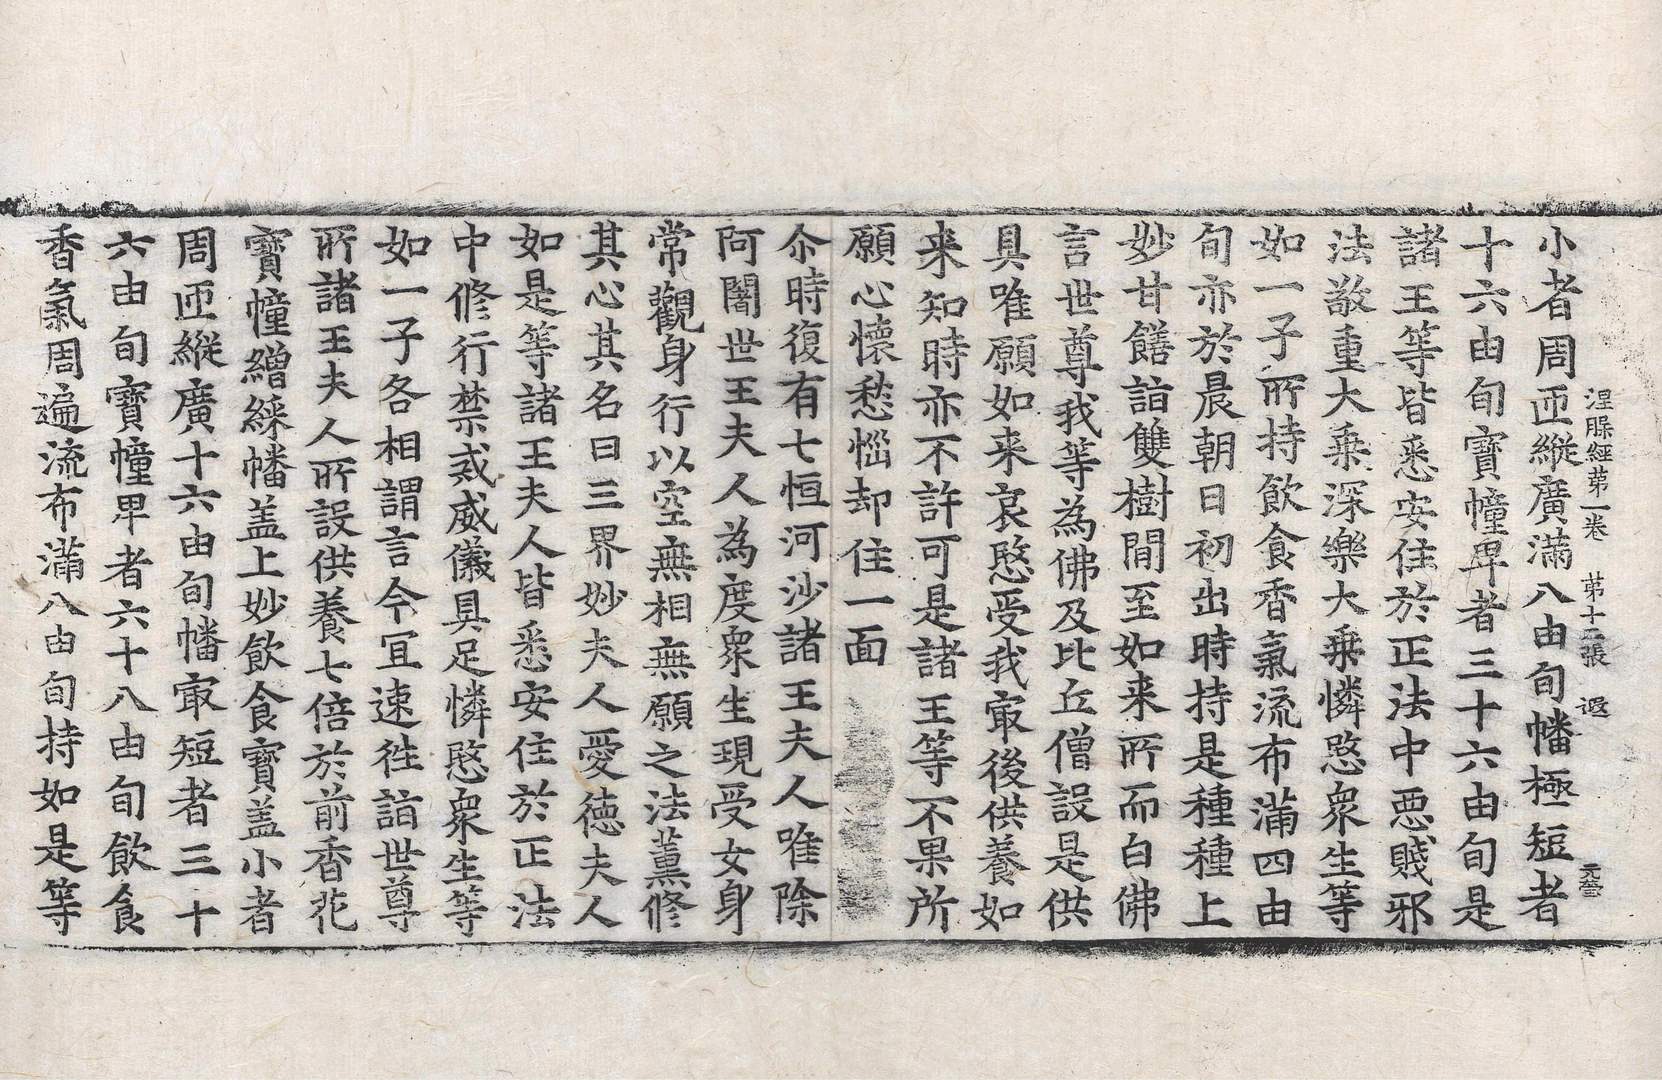 涅槃經第一卷 第十二張 遐 元瑩
小者周匝縱廣滿八由旬幡極短者
十六由旬寶幢卑者三十六由旬是
諸王等皆悉安住於正法中惡賤邪
法敬重大乘深樂大乘憐愍衆生等
如一子所持飲食香氣流布滿四由
旬亦於晨朝日初出時持是種種上
妙甘饍詣雙樹間至如来所而白佛
言世尊我等為佛及比丘僧設是供
具唯願如来哀愍受我㝡後供養如
来知時亦不許可是諸王等不果所
願心懷愁惱却住一面
尒時復有七恒河沙諸王夫人唯除
阿闍世王夫人為度衆生現受女身
常觀身行以空無相無願之法薰修
其心其名曰三界妙夫人愛德夫人
如是等諸王夫人皆悉安住於正法
中修行禁戒威儀具足憐愍衆生等
如一子各相謂言今冝速徃詣世尊
所諸王夫人所設供養七倍於前香花
寶幢繒綵幡盖上妙飲食寶盖小者
周匝縱廣十六由旬幡㝡短者三十
六由旬寶幢卑者六十八由旬飲食
香氣周遍流布滿八由旬持如是等